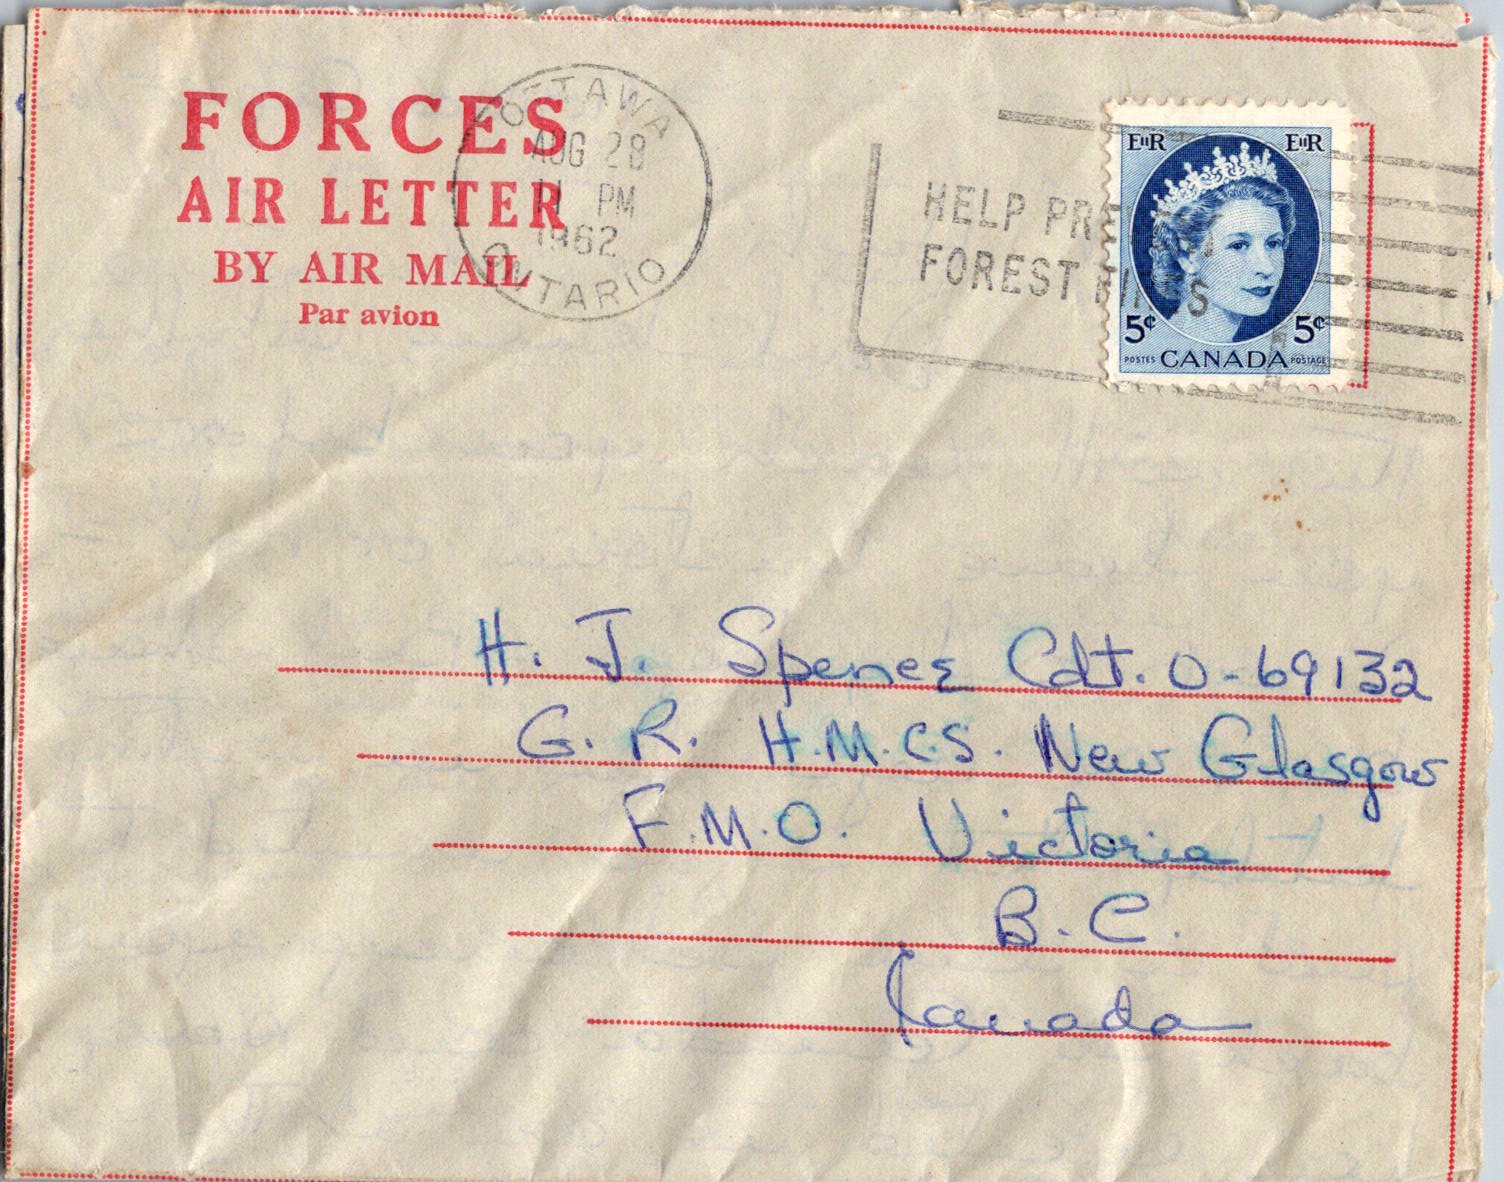 FORCES
AIR LETTER
BY AIR MAIL
Par avion
OTTAWA
AUG 28
11 PM
1962
ONTARIO
HELP PREVENT
FOREST FIRES
EIIR EIIR
5¢ 5¢
POSTES CANADA POSTAGE
H. J. Spence Cdt. O-69132
G. R. H.M.C.S. New Glasgow
F.M.O. Victoria
B.C.
Canada